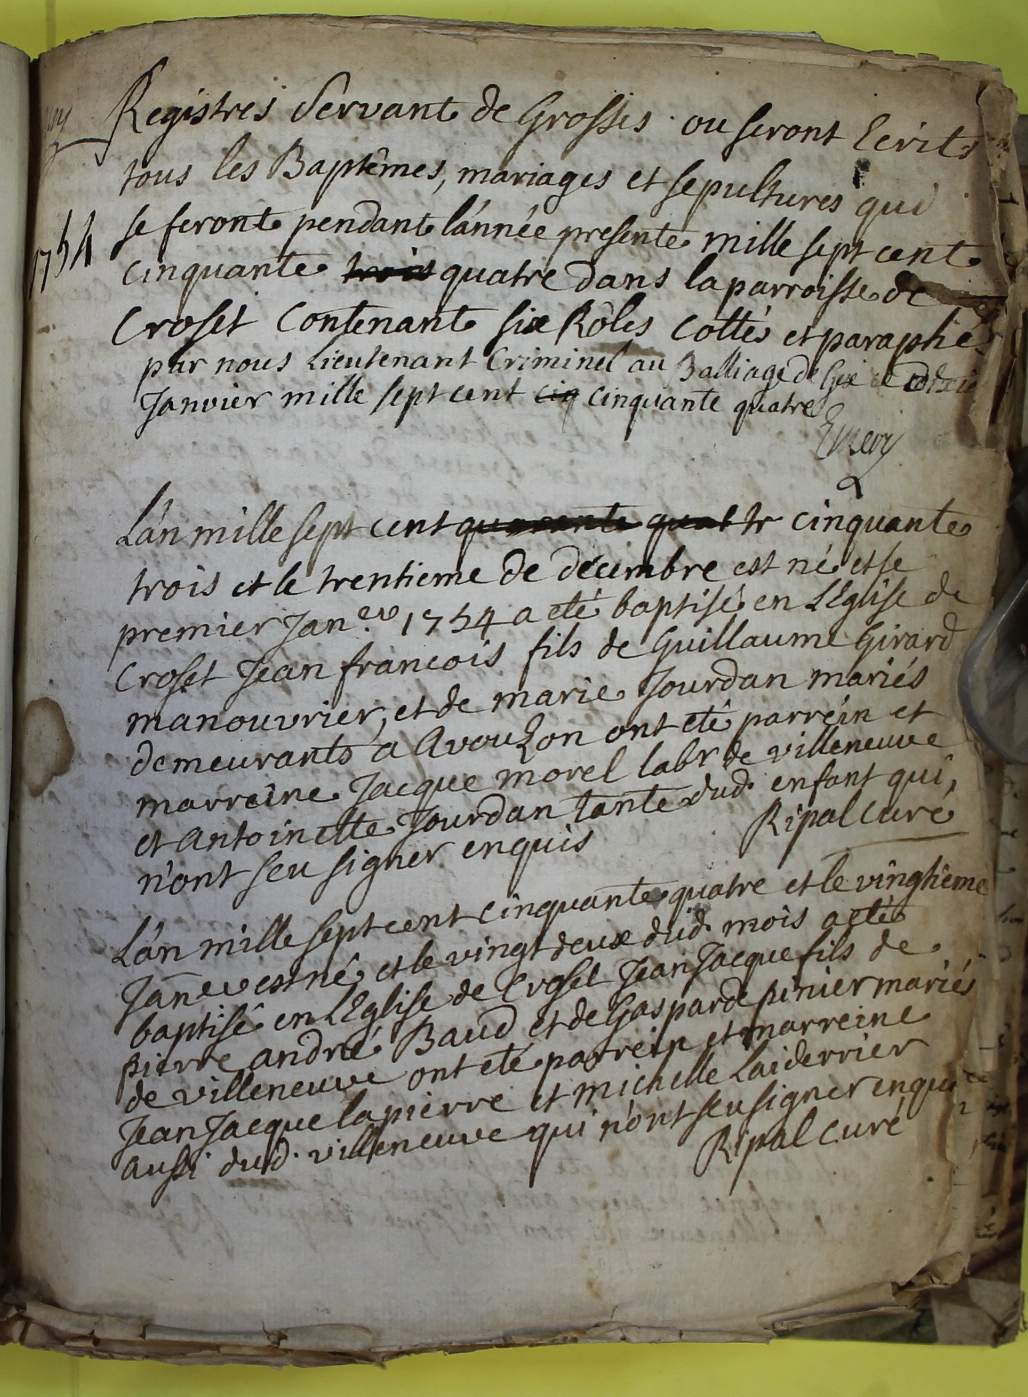 Registres Servant de Grosses ou seront Ecrits
tous les Baptêmes, mariages et sepultures qui
1754
se feront pendant l'année presente mille sept cent
cinquante trois quatre dans la parroisse de
Croset Contenant six Rôles cottés et paraphé
par nous Lieutenant Criminel au Balliage de Gex ce
Janvier mille sept cent cin cinquante quatre
Emery
L'an mille sept cent quarante quattr cinquante
trois et le trentieme de décembre est né et le
premier Jan.er 1754 a eté baptisé en L'Eglise de
Croset Jean francois fils de Guillaume Girard
manouvrier, et de marie Jourdan mariés
demeurants a Avouzon ont eté parréin et
marreine Jacque morel labr de villeneuve
et Antoinette Jourdan tante dud. enfant qui
n'ont seu signer enquis
Ripal Curé
L'an mille sept cent cinquante quatre et le vingtieme
Janer est né et le vingt deux dud. mois a eté
baptisé en L'Eglise de Croset Jean Jacque fils de
pierre andré Baud et de Gasparde pinier mariés
de villeneuve ont eté parrein et marreine
Jean Jacque lapierre et michelle Laiderrier
aussi dud. villeneuve qui n'ont seu signer enqui
Ripal Curé